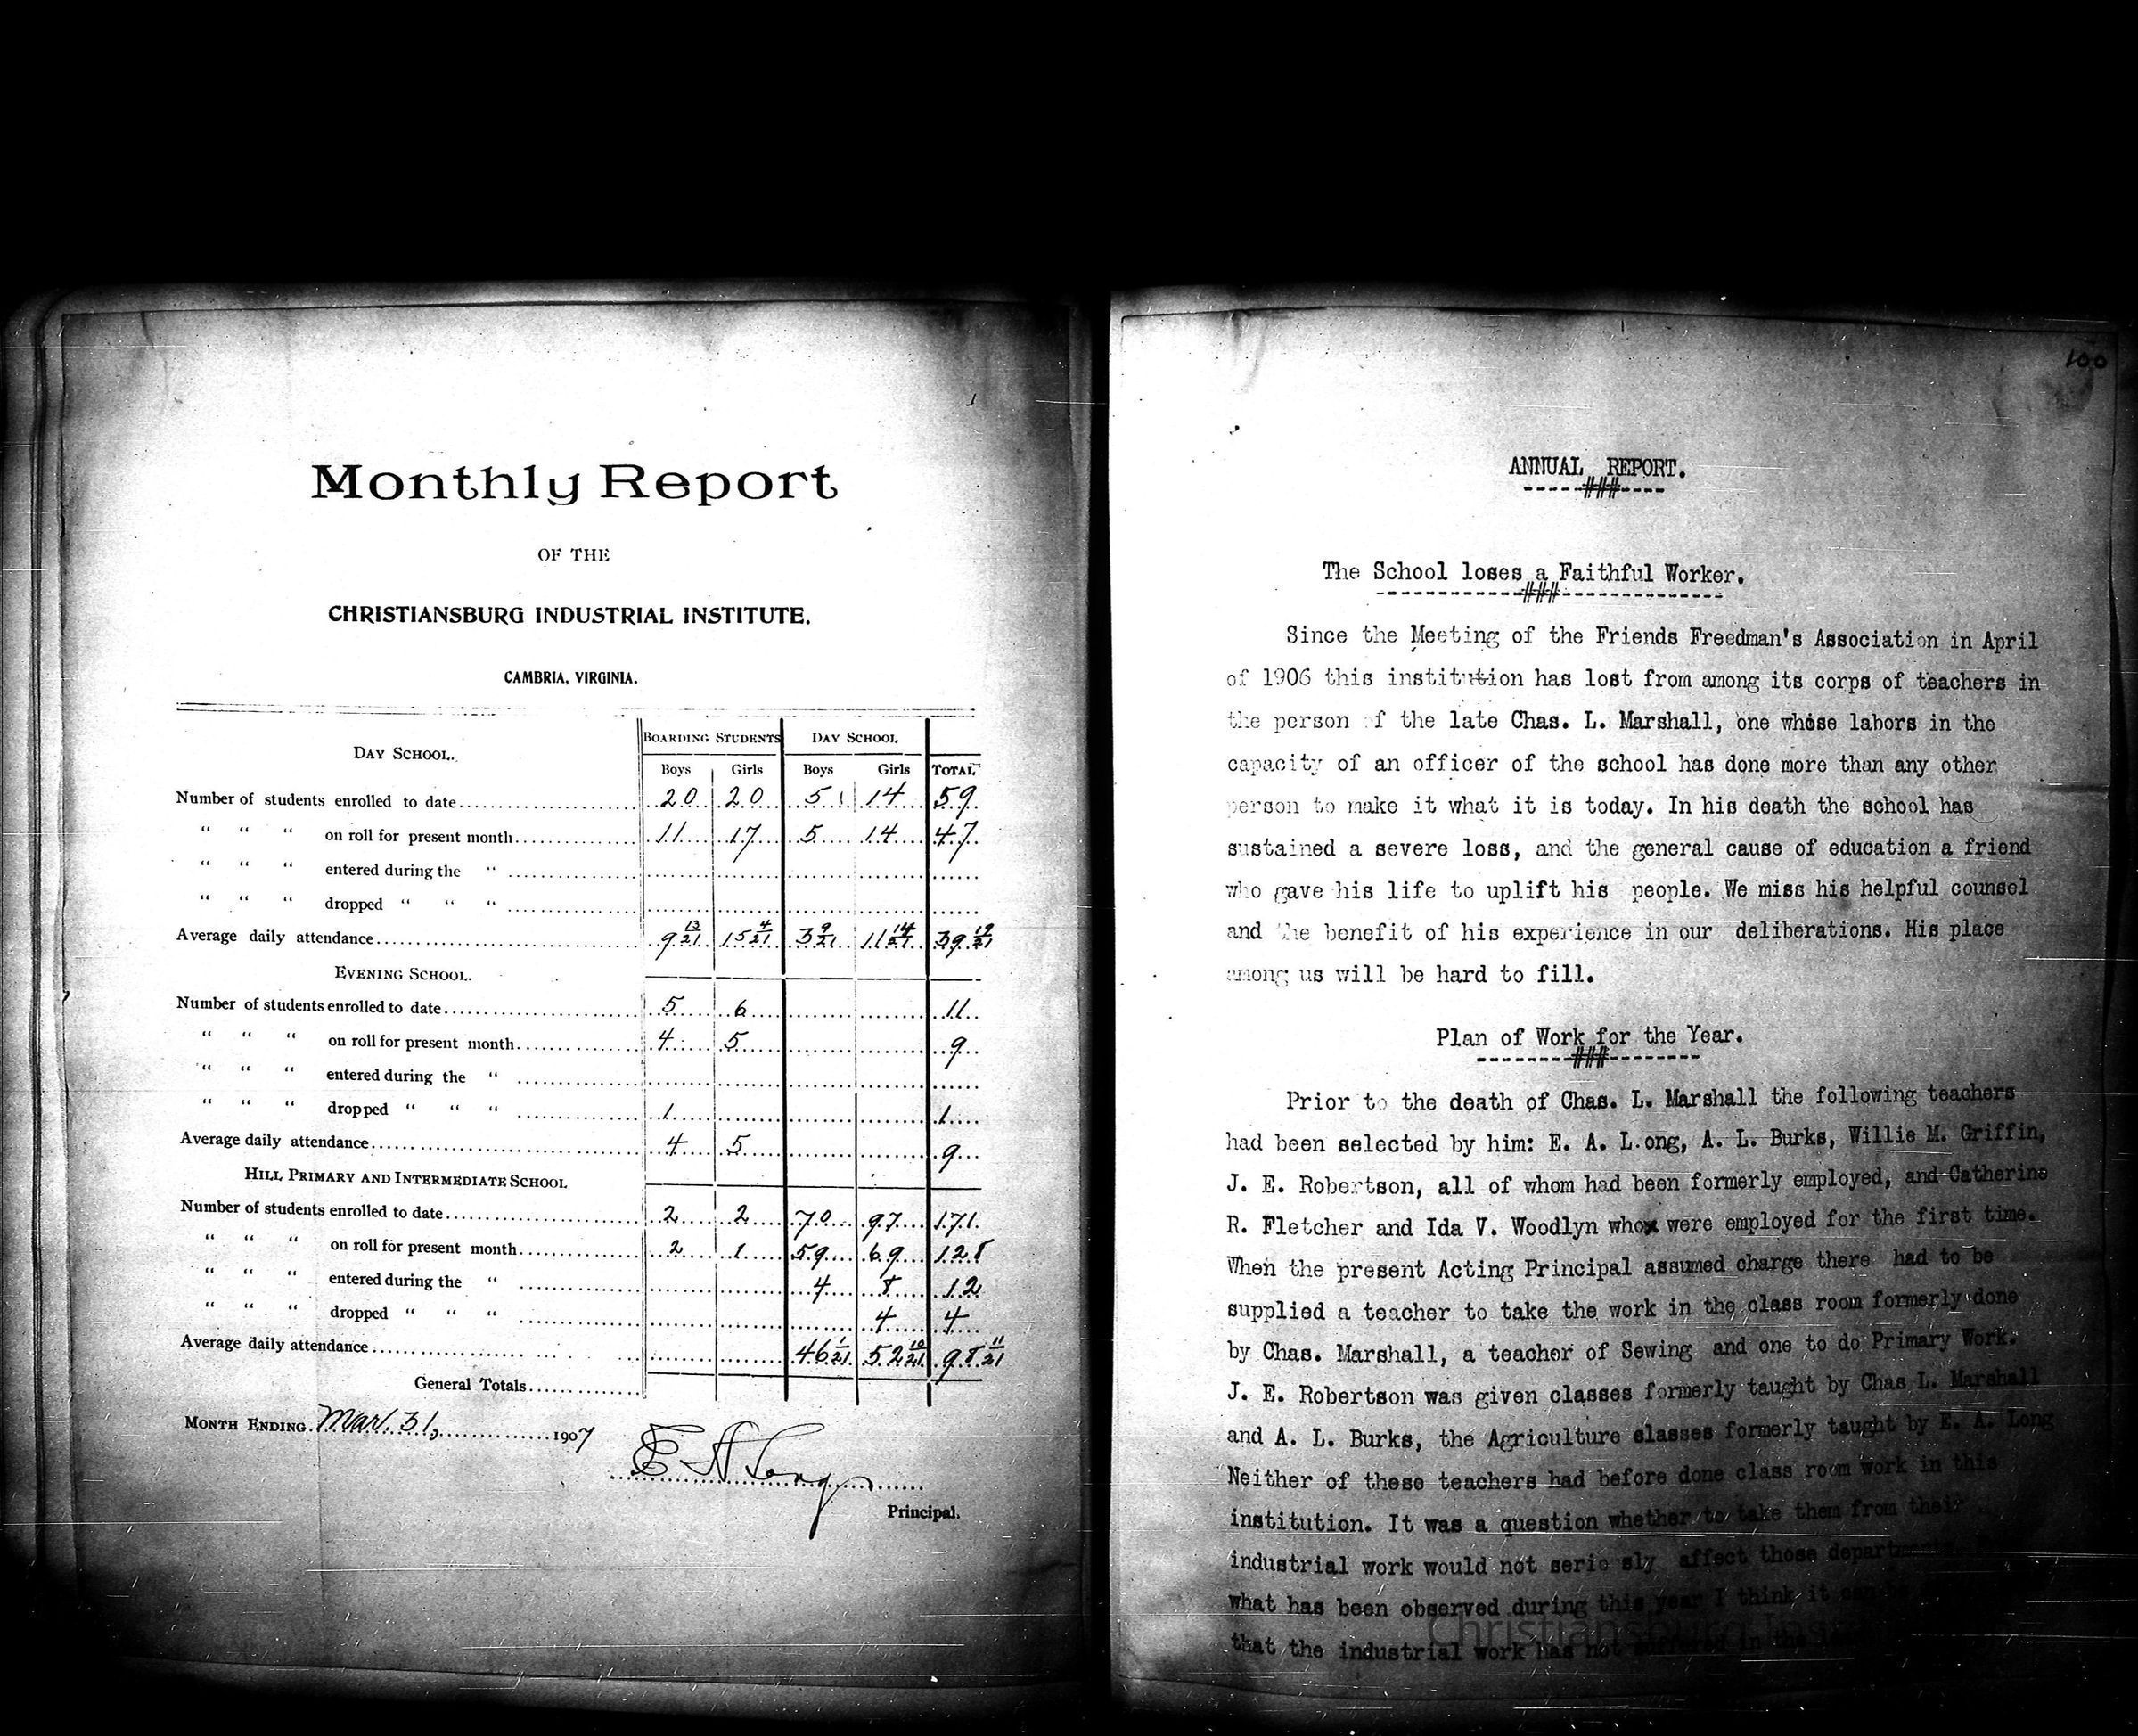 Monthly Report
OF THE
CHRISTIANSBURG INDUSTRIAL INSTITUTE.
CAMBRIA, VIRGINIA.
DAY SCHOOL. BOARDING STUDENTS DAY SCHOOL
Boys Girls Boys Girls TOTAL
Number of students enrolled to date 20 20 5 14 59
" " " on roll for present month 11 17 5 14 47
" " " entered during the "
" " " dropped " " "
Average daily attendance 9 13/21 15 4/21 3 9/21 11 14/21 39 19/21
EVENING SCHOOL.
Number of students enrolled to date 5 6 11
" " " on roll for present month 4 5 9
" " " entered during the "
" " " dropped " " " 1 1
Average daily attendance 4 5 9
HILL PRIMARY AND INTERMEDIATE SCHOOL
Number of students enrolled to date 2 2 70 97 171
" " " on roll for present month 2 1 59 69 128
" " " entered during the " 4 8 12
" " " dropped " " " 4 4
Average daily attendance 46 1/21 52 10/21 98 11/21
General Totals
MONTH ENDING Mar. 31, 1907
E A Long
Principal.
100
ANNUAL REPORT.
-----###----
The School loses a Faithful Worker.
------------###-------------
Since the Meeting of the Friends Freedman's Association in April
of 1906 this institution has lost from among its corps of teachers in
the person of the late Chas. L. Marshall, one whose labors in the
capacity of an officer of the school has done more than any other
person to make it what it is today. In his death the school has
sustained a severe loss, and the general cause of education a friend
who gave his life to uplift his people. We miss his helpful counsel
and the benefit of his experience in our deliberations. His place
among us will be hard to fill.
Plan of Work for the Year.
--------###--------
Prior to the death of Chas. L. Marshall the following teachers
had been selected by him: E. A. L.ong, A. L. Burks, Willie M. Griffin,
J. E. Robertson, all of whom had been formerly employed, and Catherine
R. Fletcher and Ida V. Woodlyn who were employed for the first time.
When the present Acting Principal assumed charge there had to be
supplied a teacher to take the work in the class room formerly done
by Chas. Marshall, a teacher of Sewing and one to do Primary Work.
J. E. Robertson was given classes formerly taught by Chas L. Marshall
and A. L. Burks, the Agriculture classes formerly taught by E. A. Long
Neither of these teachers had before done class room work in this
institution. It was a question whether to take them from their
industrial work would not seriously affect those
what has been observed during this year I think it can
that the industrial work has not
Christiansburg